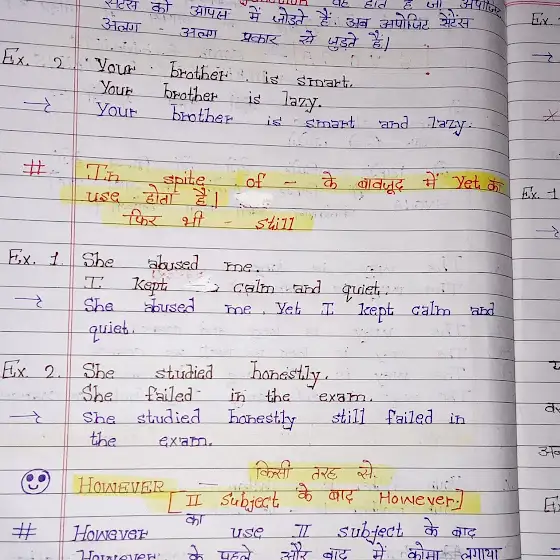 वह होता है जो अपोजिट
सेंटेंस को आपस में जोड़ते हैं. अब अपोजिट सेंटेंस
अलग - अलग प्रकार से जुड़ते हैं।
Ex. 2. Your brother is smart.
Your brother is lazy.
→ Your brother is smart and lazy.
# In spite of - के बावजूद में Yet का
use होता है।
फिर भी - still
Ex. 1. She abused me.
I kept calm and quiet.
→ She abused me. Yet I kept calm and
quiet.
Ex. 2. She studied honestly.
She failed in the exam.
→ She studied honestly still failed in
the exam.
HOWEVER - किसी तरह से.
[II subject के बाद However.]
# However का use II subject के बाद
However के पहले और बाद में कोमा लगाया
Ex.
→
Ex. 1
→